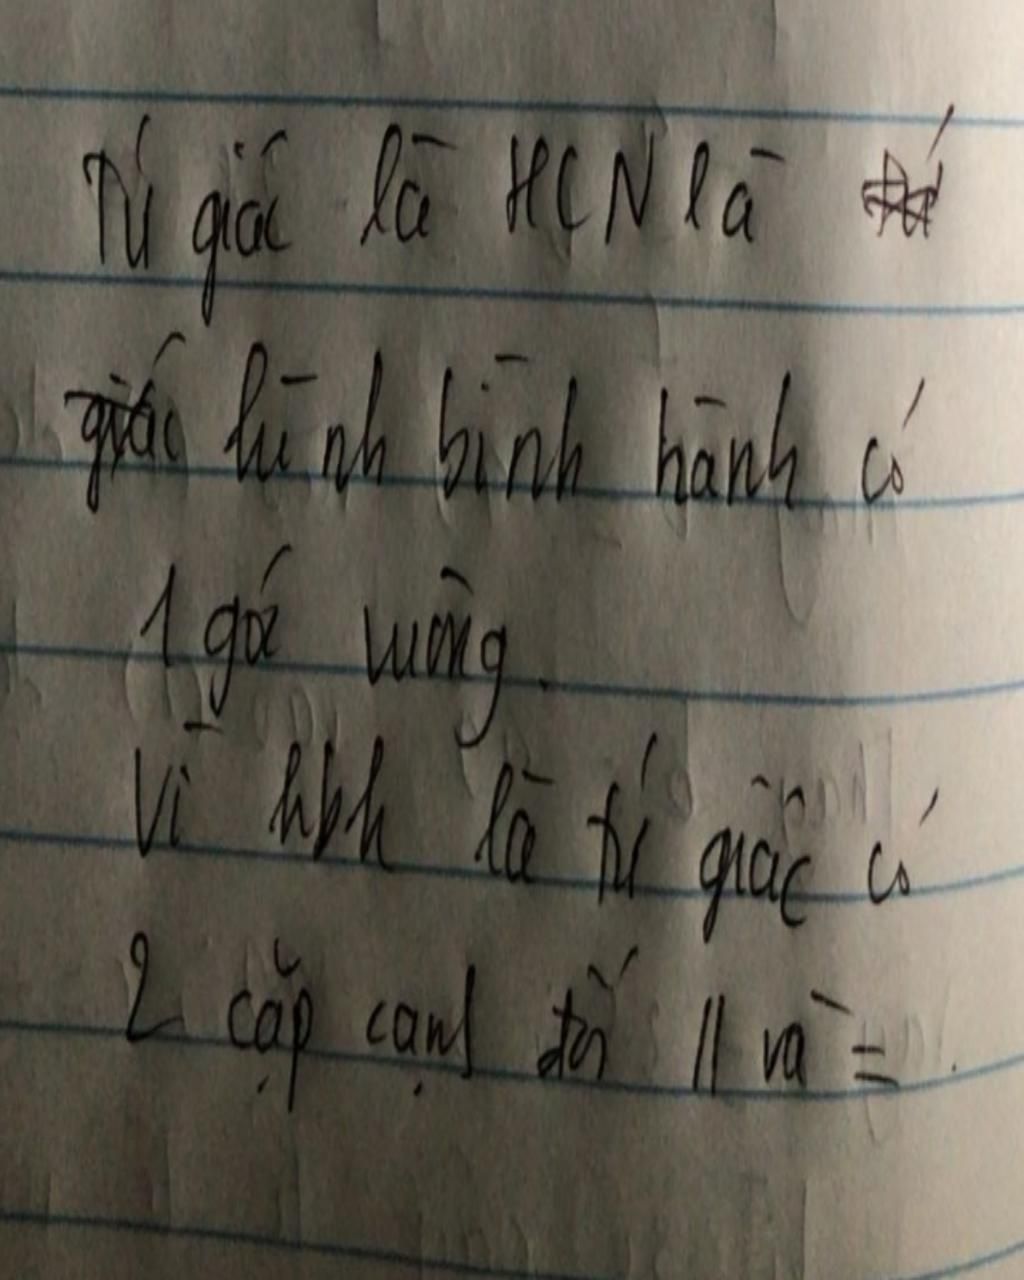 Tứ giác là HCN là
hình bình hành có
1 góc vuông.
Vì hbh là tứ giác có
2 cặp cạnh đối // và = .